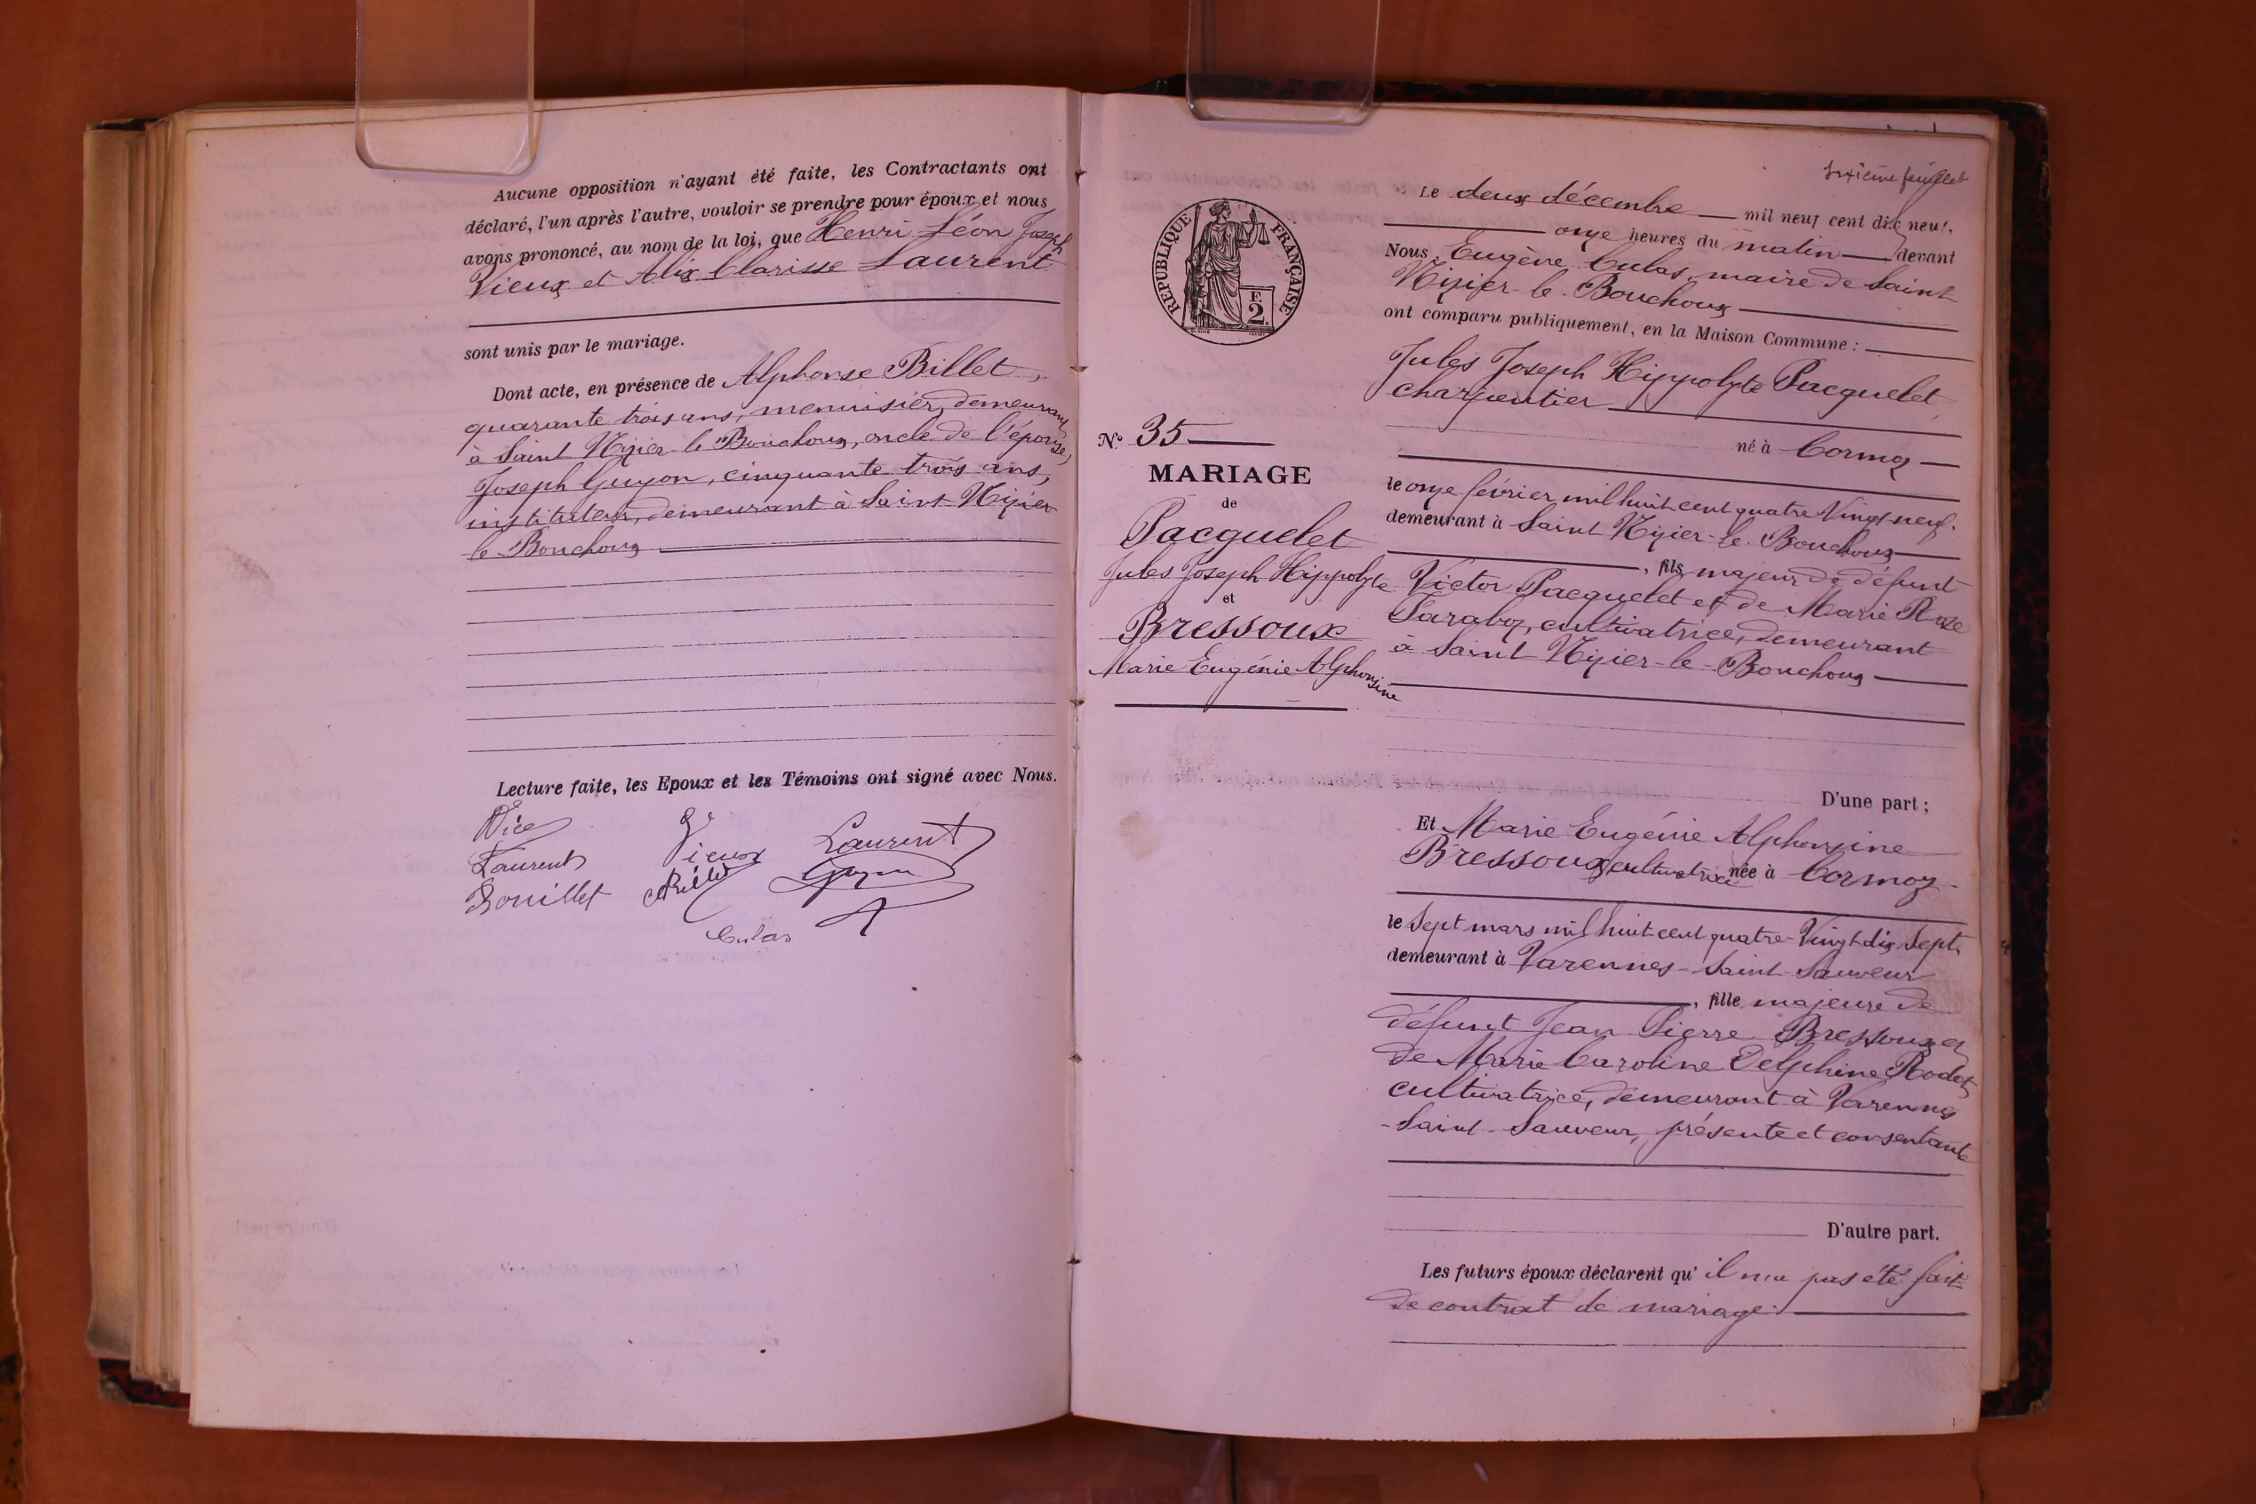 Aucune opposition n'ayant été faite, les Contractants ont
déclaré, l'un après l'autre, vouloir se prendre pour époux et nous
avons prononcé, au nom de la loi, que Henri Léon Joseph
Vieux et Alix Clarisse Laurent
sont unis par le mariage.
Dont acte, en présence de Alphonse Billet,
quarante trois ans, menuisier, demeurant
à Saint Nizier le Bouchoux, oncle de l'épouse,
Joseph Guyon, cinquante trois ans,
instituteur, demeurant à Saint Nizier
le Bouchoux
Lecture faite, les Epoux et les Témoins ont signé avec Nous.
Vieux Laurent
Laurent Billet Guyon
Bouillet
Culas
RÉPUBLIQUE FRANÇAISE
E
2
N° 35
MARIAGE
de
Pacquelet
Jules Joseph Hippolyte
et
Bressoux
Marie Eugénie Alphonsine
feuillet
Le deux décembre mil neuf cent dix neuf,
onze heures du matin devant
Nous, Eugène Culas, maire de Saint
Nizier-le-Bouchoux
ont comparu publiquement, en la Maison Commune :
Jules Joseph Hippolyte Pacquelet,
charpentier
né à Cormoz
le onze février mil huit cent quatre Vingt neuf.
demeurant à Saint Nizier-le-Bouchoux
, fils majeur de défunt
Victor Pacquelet et de Marie Rose
Taraboz, cultivatrice, demeurant
à Saint Nizier-le-Bouchoux
D'une part ;
Et Marie Eugénie Alphonsine
Bressoux, cultivatrice née à Cormoz
le Sept mars mil huit cent quatre-Vingt dix Sept
demeurant à Varennes-Saint-Sauveur
, fille majeure de
défunt Jean Pierre Bressoux et
de Marie Caroline Delphine Rodet,
cultivatrice, demeurant à Varennes
-Saint-Sauveur, présente et consentante
D'autre part.
Les futurs époux déclarent qu'il n'a pas été fait
de contrat de mariage.